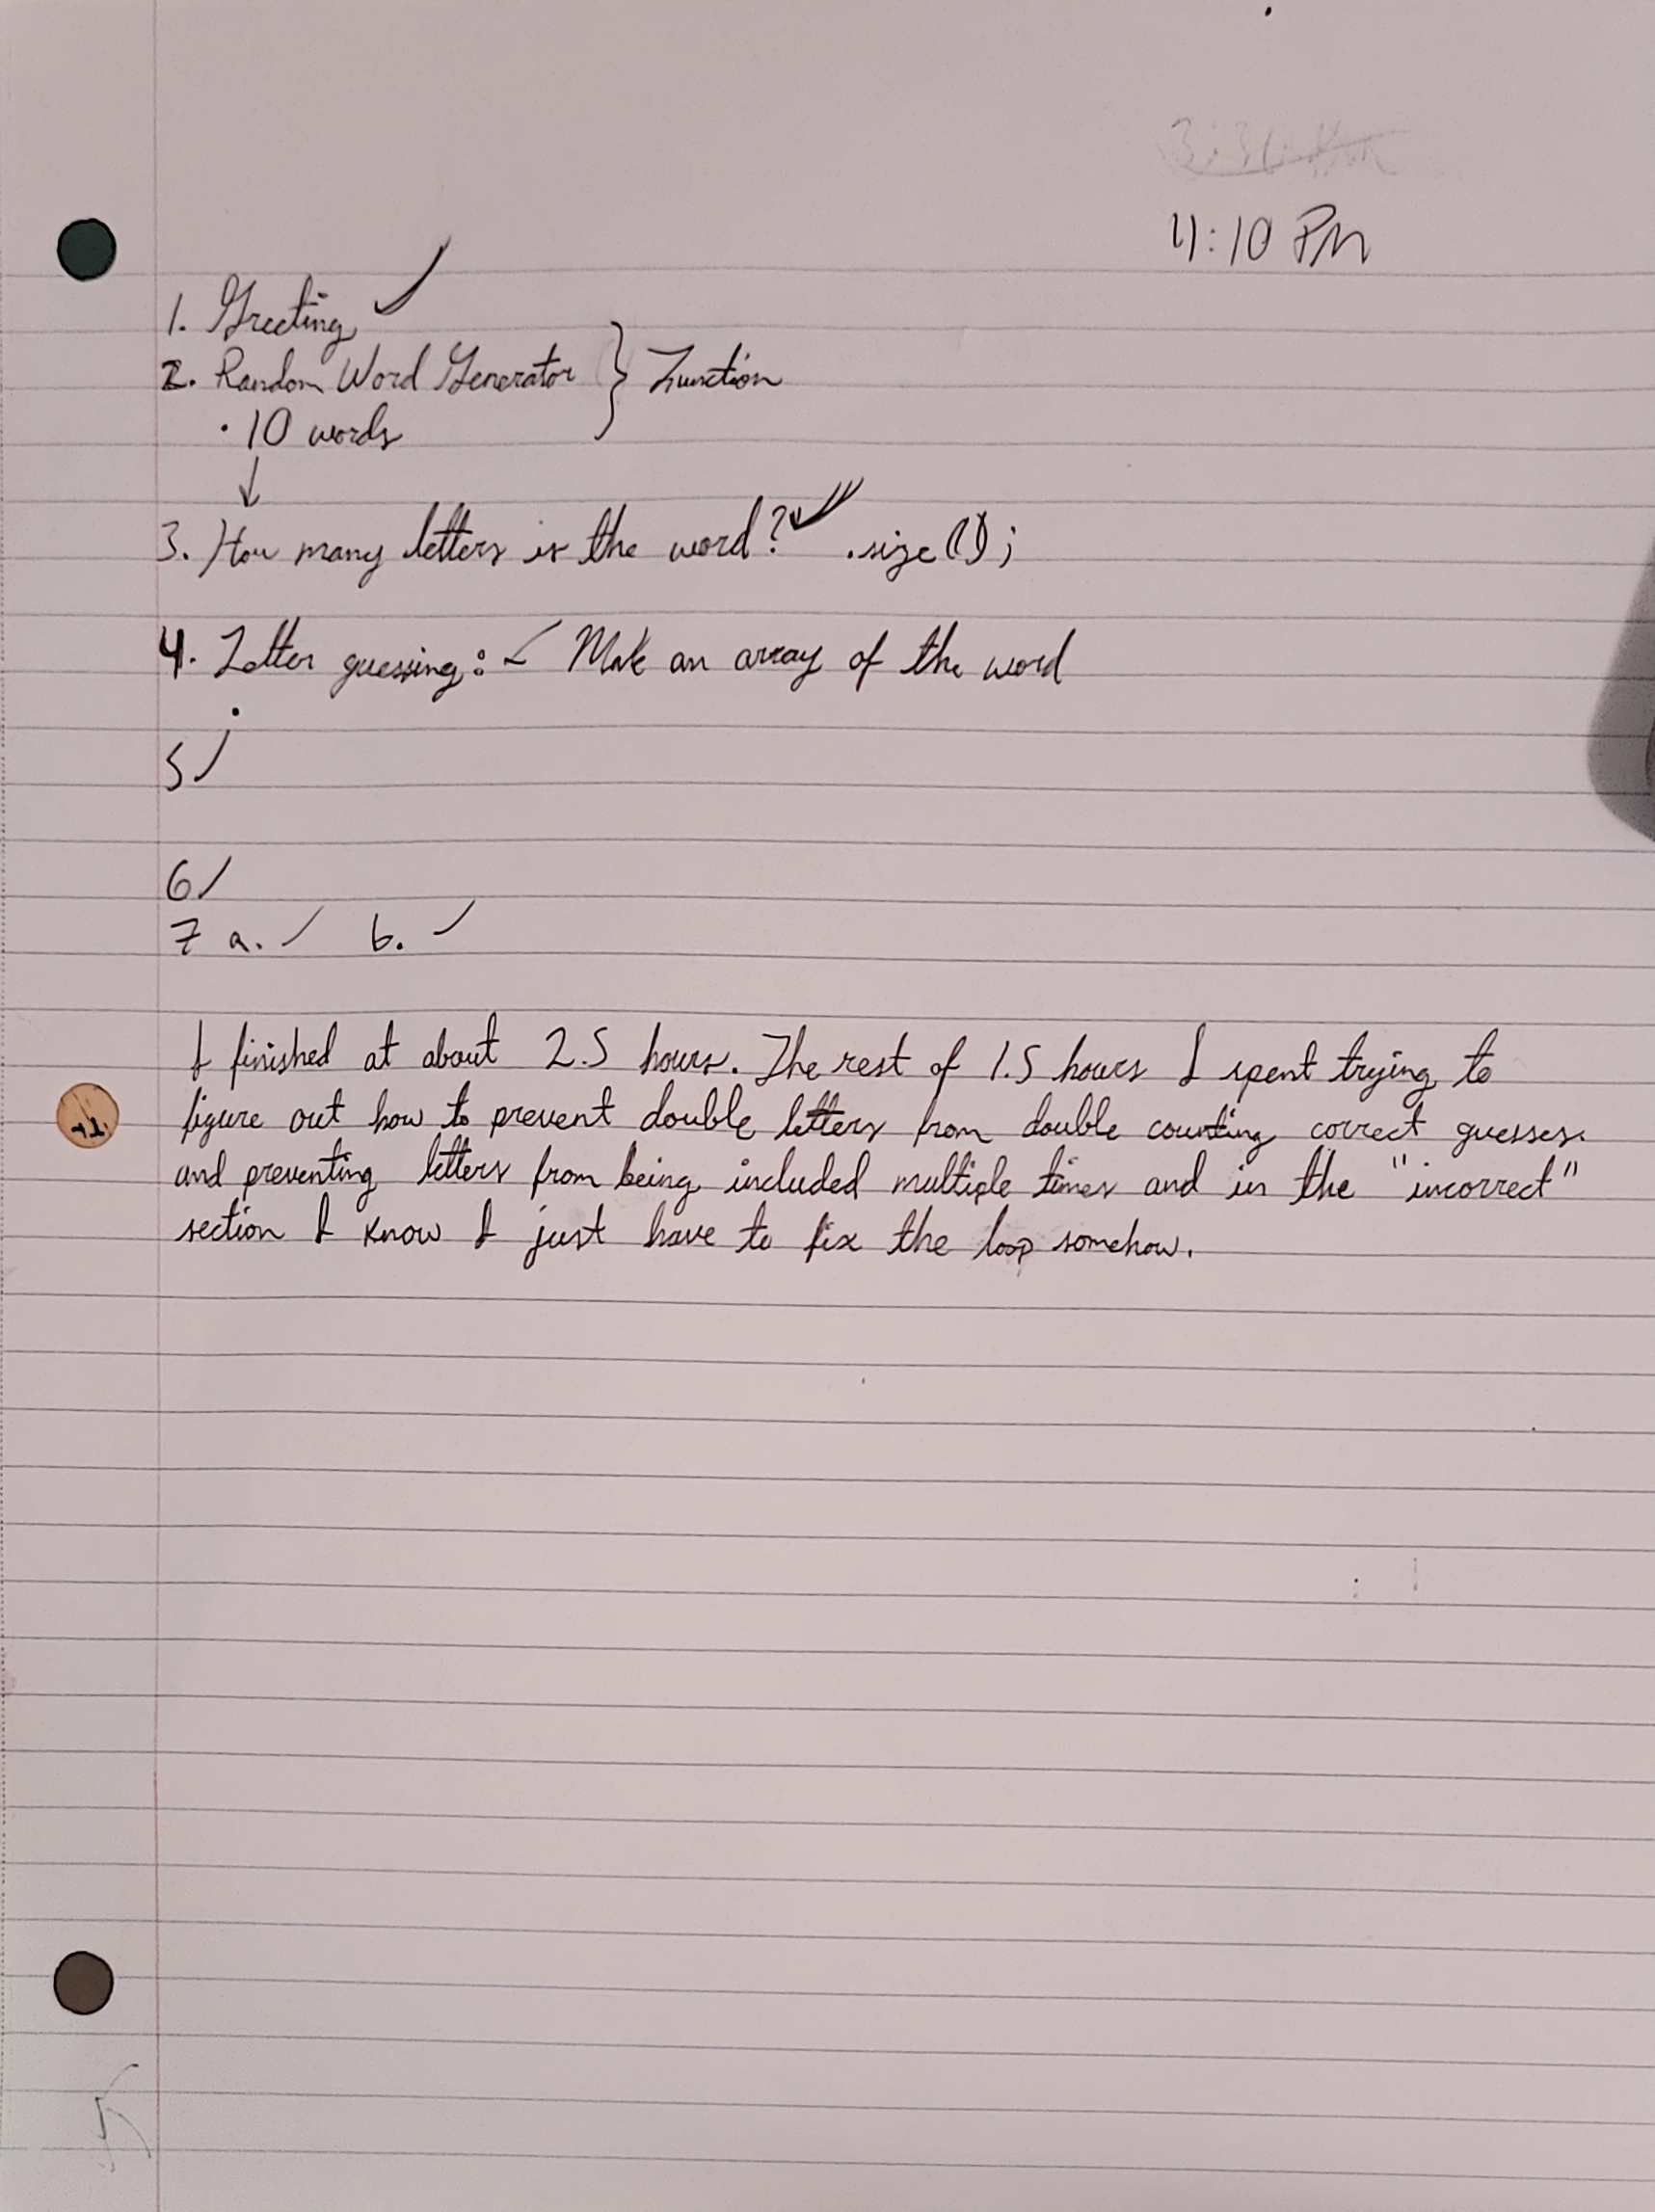 4:10 PM
1. Greeting ✓
2. Random Word Generator } Function
· 10 words
↓
3. How many letters is the word? ✓ .size();
4. Letter guessing: ✓ Make an array of the word
5 ✓
6 ✓
7 a. ✓ b. ✓
I finished at about 2.5 hours. The rest of 1.5 hours I spent trying to
figure out how to prevent double letters from double counting correct guesses.
and preventing letters from being included multiple times and in the "incorrect"
section I know I just have to fix the loop somehow.